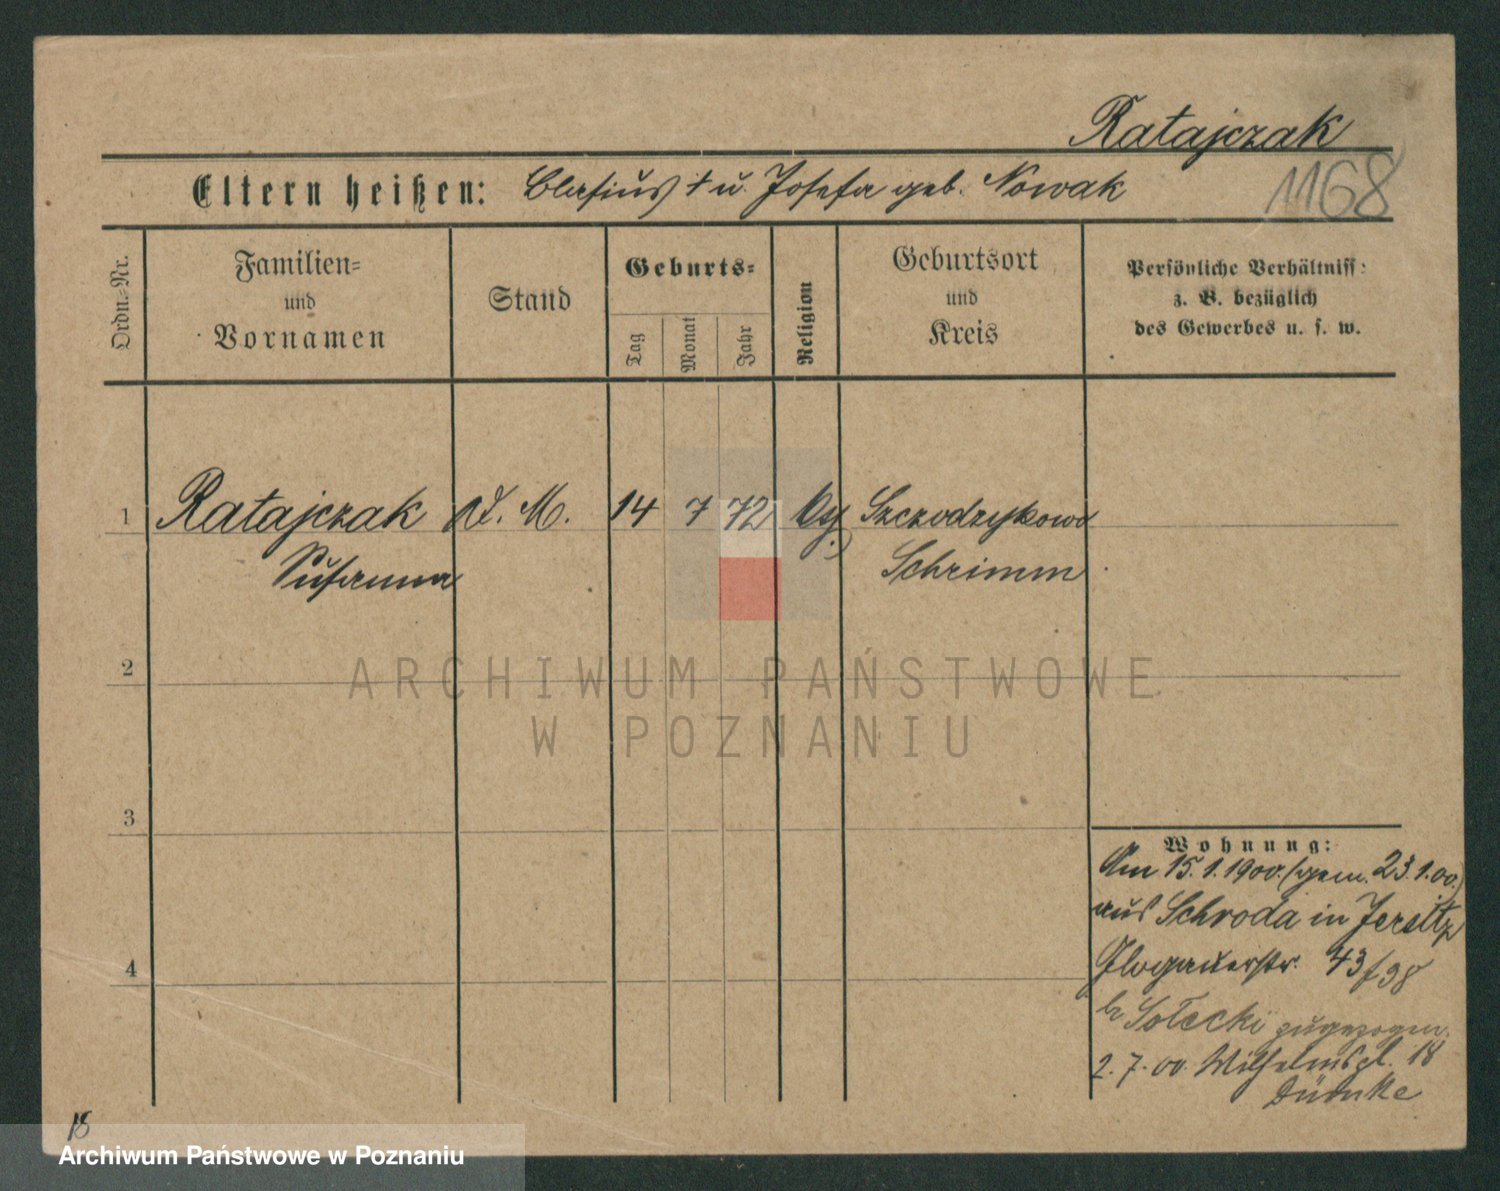 Ratajczak
Eltern heißen: Blasius † u. Josefa geb. Nowak
1168
Ordn.-Nr.
Familien-
und
Vornamen
Stand
Geburts-
Tag
Monat
Jahr
Religion
Geburtsort
und
Kreis
Persönliche Verhältniss:
z. B. bezüglich
des Gewerbes u. s. w.
1 Ratajczak d. M. 14 7 72 Szczodrzykowo
Susanna Schrimm
2
ARCHIWUM PAŃSTWOWE
W POZNANIU
3
Wohnung:
Am 15.1.1900. (gem. 23.1.00.)
aus Schroda in Jersitz
Glogauerstr. 43/38
b Sołecki zugezogen.
4
2.7.00. Wilhelmspl. 18
Dümke
18
Archiwum Państwowe w Poznaniu